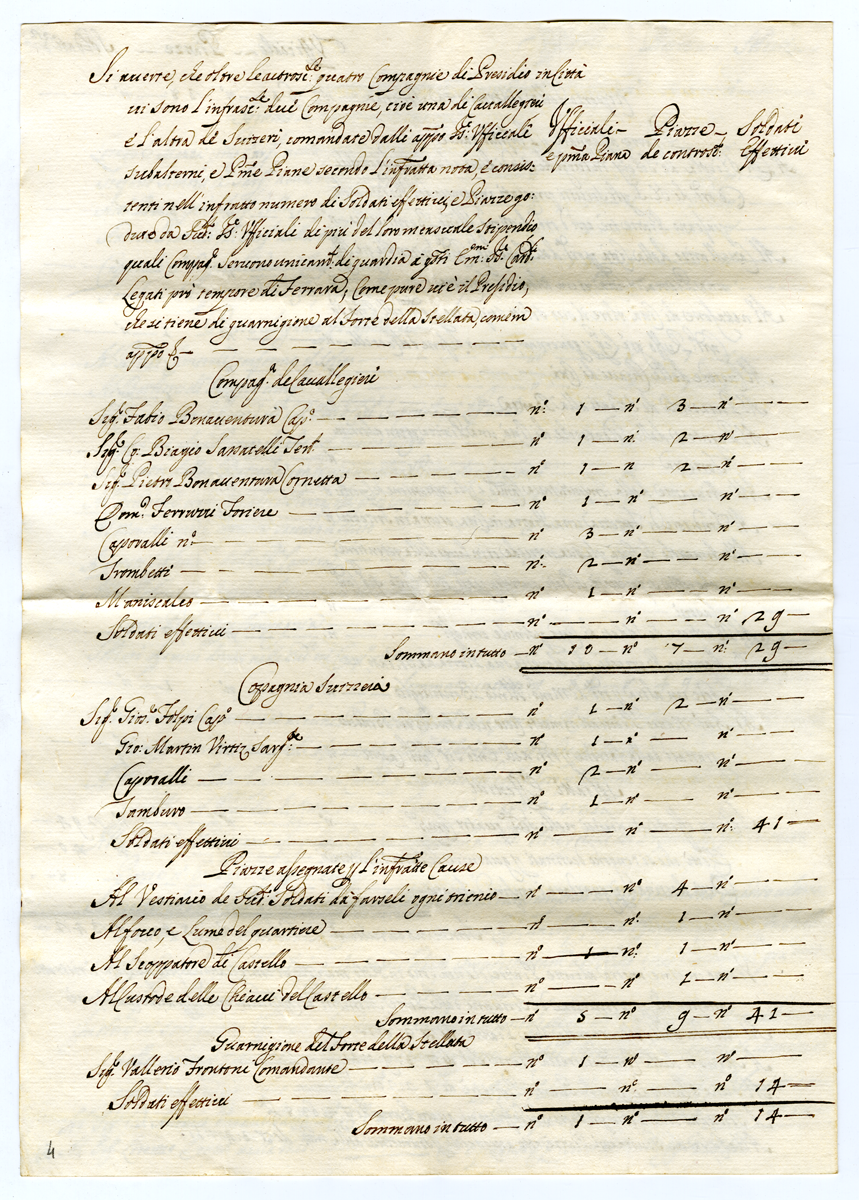 Si averte, che oltre le accrosc.te quatro Compagnie di Presidio in Città
vi sono l'infrasc.te due Compagnie, cioè una di Cavallegieri
e l'altra de Suizzeri, comandate dalli app.o SS.ri Ufficiali
Ufficiali e p.ma Piana
Piazze de controsc.i
Soldati Effettivi
subalterni, e P.me Piane secondo l'infratta nota, e consis-
tenti nell'infratto numero di Soldati effettivi, e Piazze go:
dute da Sud.i SS.i Ufficiali di più del loro mensuale stipendio
quali Comp.e Servono unicam.te di guardia a q.sti Em.mi SS.i Card.li
Legati prò tempore di Ferrara, Come pure vi è il Presidio,
che si tiene di guarnigione al Forte della Stellata, come in
app.o &
Compag.a de Cavallegieri
Sig.r Fabio Bonaventura Cap.o — n.o 1 — n.o 3 — n.o —
Sig.r Co: Biagio Sassatelli Ten.te — n.o 1 — n. 2 — n.o —
Sig.r Pietro Bonaventura Cornetta — n.o 1 — n 2 — n.o —
Dom.o Ferruzzi Foriere — n.o 1 — n.o — n.o —
Caporalli n.o — n.o 3 — n.o — n.o —
Trombetti — n.o 2 — n.o — n.o —
Maniscalco — n.o 1 — n.o — n.o —
Soldati effettivi — n.o — n.o — n.o 29 —
Sommano in tutto — n.o 10 — n.o 7 — n.o 29 —
Copagnia Suizzera
Sig.r Gios.o Folpi Cap.o — n.o 1 — n.o 2 — n.o —
Gio: Martin Virtiz Sarg.te — n.o 1 — n.o — n.o —
Caporalli — n.o 2 — n.o — n.o —
Tamburo — n.o 1 — n.o — n.o —
Soldati effettivi — n.o — n.o — n.o 41 —
Piazze assegnate p l'infratte Cause
Al Vestiario de Sud.i Soldati da farseli ogni trienio — n.o — n.o 4 — n.o —
Al foco, e Lume del quartiere — n.o — n.o 1 — n.o —
Al Scoppatore di Castello — n.o — 1 — n.o 1 — n.o —
Al Custode delle Chiavi del Castello — n.o — n.o 1 — n.o —
Sommano in tutto — n.o 5 — n.o 9 — n.o 41 —
Guarnigione del Forte della Stellata
Sig.r Vallerio Frontoni Comandante — n.o 1 — n.o — n.o —
Soldati effettivi — n.o — n.o — n.o 14 —
Sommano in tutto — n.o 1 — n.o — n.o 14 —
4